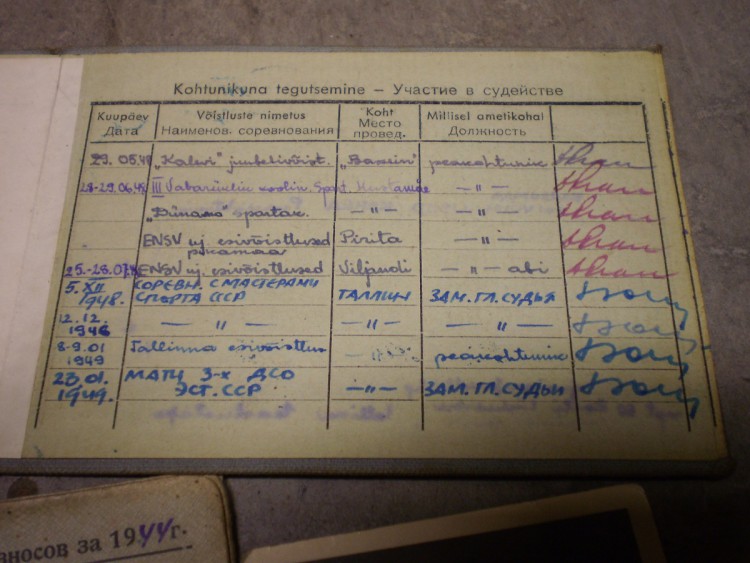 Kohtunikuna tegutsemine – Участие в судействе
Kuupäev Дата Võistluste nimetus Наименов. соревнования Koht Место провед. Millisel ametikohal Должность
29.05.48 „Kalevi" juubelivõist. „Bassein" peakohtunik
28-29.06.48 III Vabariiklik koolin. Spart. Mustamäe — " —
„Dünamo" spartak. — " — — " —
ENSV uj. esivõistlused Pirita — " —
pikamaa
25.-28.07.48 ENSV uj. esivõistlused Viljandi — " — abi
5. XII 1948. СОРЕВН. С МАСТЕРАМИ СПОРТА СССР ТАЛЛИН ЗАМ. ГЛ. СУДЬЯ
12.12. 1948 — " — — " — — " —
8-9.01 1949 Tallinna esivõistlus — " — peakohtunik
23.01. 1949. МАТЧ 3-х ДСО ЭСТ. ССР — " — ЗАМ. ГЛ. СУДЬИ
взносов за 1944 г.